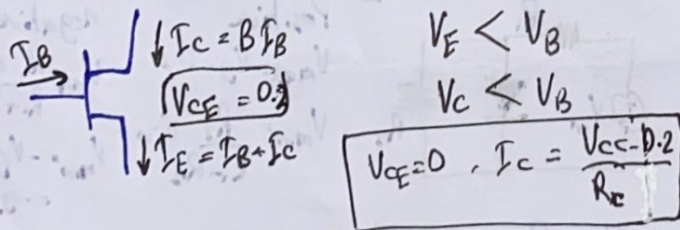 I_B
I_C = B I_B
V_CE = 0.2
I_E = I_B + I_C
V_E < V_B
V_C < V_B
V_CE = 0 , I_C = (V_CC - 0.2) / R_C